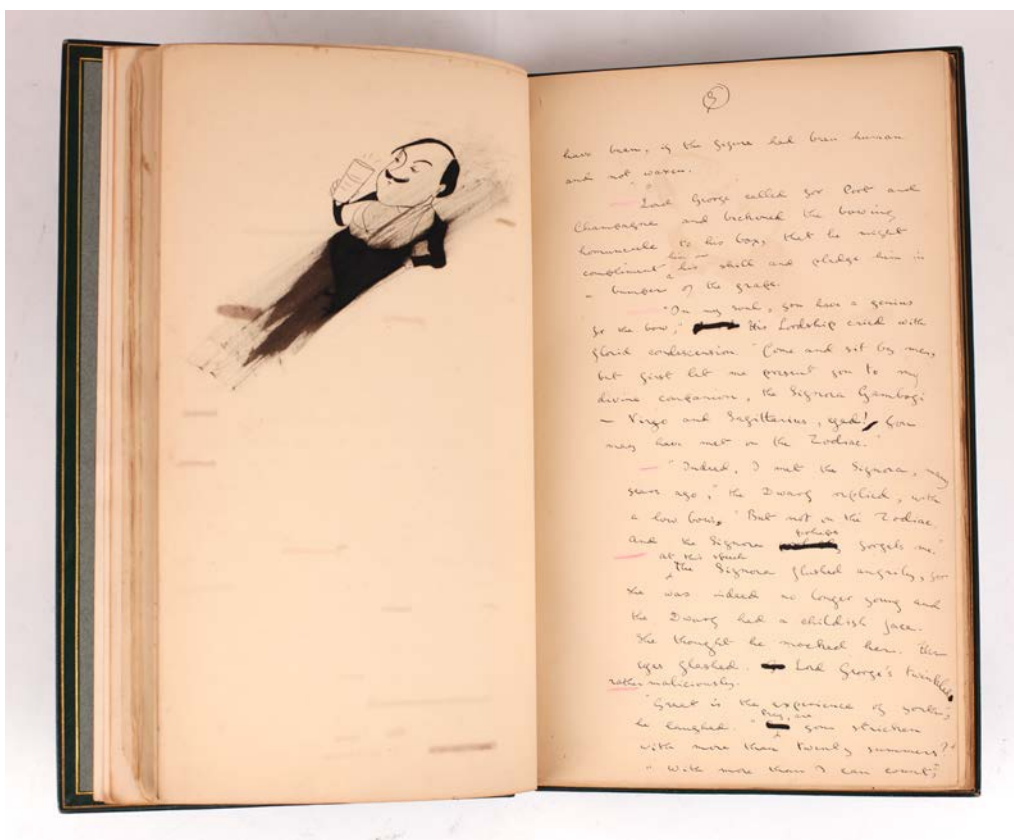 5
have been, if the figure had been human
and not waxen.
"Lord George called for Port and
Champagne and beckoned the bowing
homuncule to his box, that he might
compliment him on his skill and pledge him in
a bumper of the grape.
"On my soul, you have a genius
for the bow," His Lordship cried with
florid condescension. "Come and sit by me,
but first let me present you to my
divine companion, the Signora Gambogi
— Virgo and Sagittarius, egad! You
may have met on the Zodiac."
"Indeed, I met the Signora, many
years ago," the Dwarf replied, with
a low bow. "But not on the Zodiac.
And the Signora perhaps forgets me."
at this speech
The Signora flushed angrily, for
she was indeed no longer young and
the Dwarf had a childish face.
She thought he mocked her. Her
eyes flashed. Lord George's twinkled
rather maliciously.
"Great is the experience of youth,"
he laughed. "Pray, are you stricken
with more than twenty summers?"
"With more than I can count,"